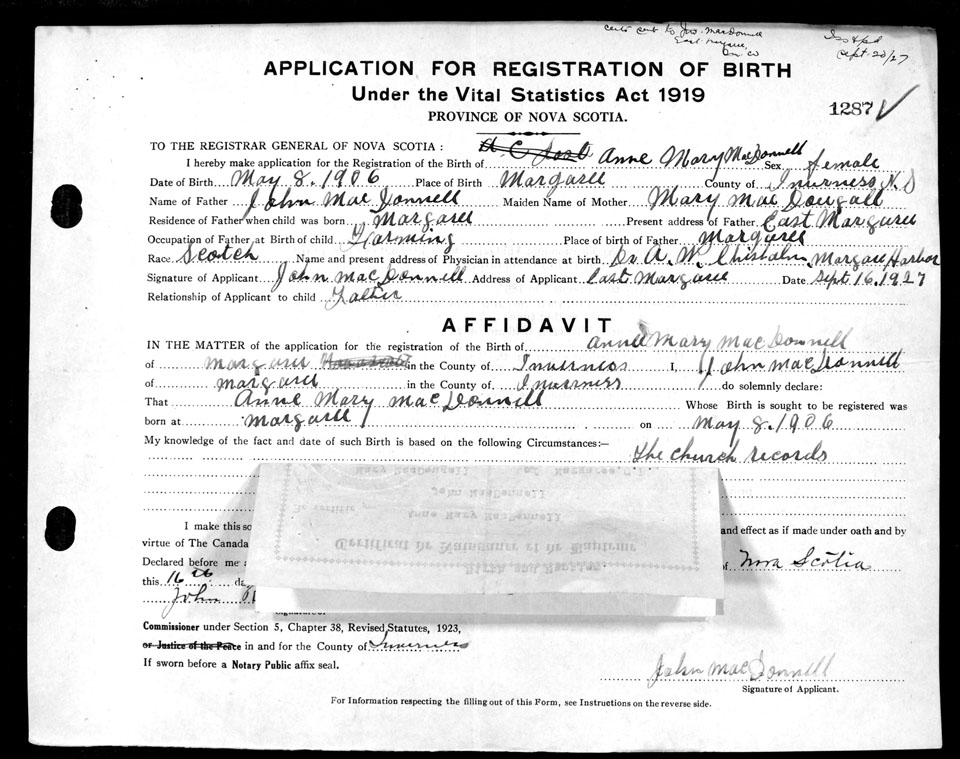 certs sent to Jno. MacDonnell
East Margaree,
Inv. Co
Sept. 20/27
APPLICATION FOR REGISTRATION OF BIRTH
Under the Vital Statistics Act 1919
PROVINCE OF NOVA SCOTIA.
1287
TO THE REGISTRAR GENERAL OF NOVA SCOTIA:
I hereby make application for the Registration of the Birth of Anne Mary MacDonnell Sex female
Date of Birth May 8. 1906 Place of Birth Margaree County of Inverness N.S
Name of Father John MacDonnell Maiden Name of Mother Mary MacDougall
Residence of Father when child was born Margaree Present address of Father East Margaree
Occupation of Father at Birth of child Farming Place of birth of Father Margaree
Race Scotch Name and present address of Physician in attendance at birth Dr. A. W. Chisholm, Margaree Harbor
Signature of Applicant John MacDonnell Address of Applicant East Margaree Date Sept 16, 1927
Relationship of Applicant to child Father
AFFIDAVIT
IN THE MATTER of the application for the registration of the Birth of Anne Mary MacDonnell
of Margaree in the County of Inverness I, John MacDonnell
of Margaree in the County of Inverness do solemnly declare:
That Anne Mary MacDonnell Whose Birth is sought to be registered was
born at Margaree on May 8. 1906
My knowledge of the fact and date of such Birth is based on the following Circumstances:—
the church records
Mary MacDougall of Margaree, N.S.
John MacDonnell
Anne Mary MacDonnell
Certificat de Naissance et de Bapteme
Birth and Baptism
I make this so and effect as if made under oath and by
virtue of The Canada
Declared before me of Nova Scotia
this 16th da
John
Signature of
Commissioner under Section 5, Chapter 38, Revised Statutes, 1923,
or Justice of the Peace in and for the County of Inverness
If sworn before a Notary Public affix seal.
John MacDonnell
Signature of Applicant.
For Information respecting the filling out of this Form, see Instructions on the reverse side.